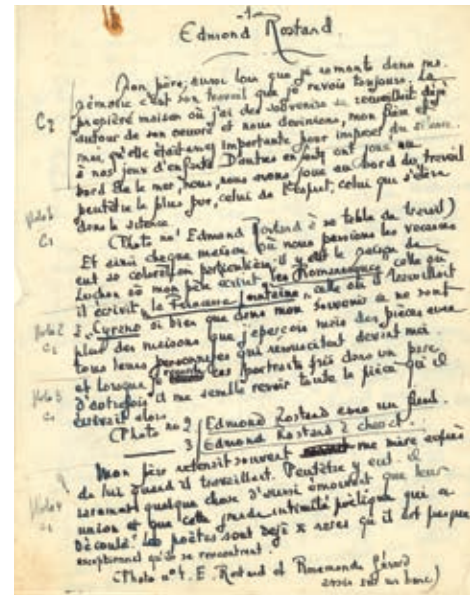 -1-
Edmond Rostand.
Mon père, aussi loin que je remonte dans ma
mémoire c'est son travail que je revois toujours. La
première maison où j'ai des souvenirs se recueillait déjà
autour de son oeuvre et nous devinions, mon frère et
moi, qu'elle était assez importante pour imposer du silence
à nos jeux d'enfants. D'autres enfants ont joué au
bord de la mer, nous, nous avons joué au bord du travail
peut être le plus pur, celui de l'esprit, celui qui s'élève
dans le silence.
C2
photo 1
C1
(Photo no 1 Edmond Rostand à sa table de travail)
Et ainsi chaque maison où nous passions les vacances
eut sa coloration particulière. il y eut la maison de
Luchon où mon père écrivit les Romanesques, celle où
il écrivit "la Princesse Lointaine", celle où il travaillait
à "Cyrano" si bien que dans mon souvenir ce ne sont
plus des maisons que j'aperçois mais des pièces avec
tous leurs personnages qui ressuscitent devant moi.
et lorsque je regarde ces portraits pris dans un parc
d'autrefois il me semble revoir toute la pièce qu'il
écrivait alors.
photo 2
C1
photo 3
C1
(Photo no 2 Edmond Rostand avec un fusil.
3 Edmond Rostand à cheval.
Mon père retenait souvent ma mère auprès
de lui quand il travaillait. Peut être y eut-il
rarement quelque chose d'aussi émouvant que leur
union et que cette grande intimité poétique qui a
découlé. les poètes sont déjà si rares qu'il est presque
exceptionnel qu'ils se rencontrent.
photo 4
C1
(Photo no 4. E. Rostand et Rosemonde Gérard
assis sur un banc)